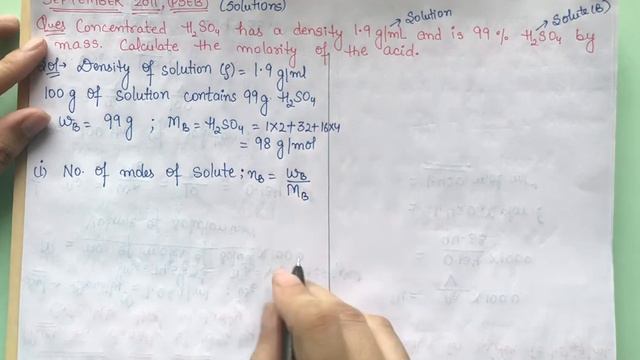 SEPTEMBER 2011, (PSEB) (Solutions)
Solution Solute (B)
Ques Concentrated H₂SO₄ has a density 1.9 g/mL and is 99% H₂SO₄ by
mass. Calculate the molarity of the acid.
Sol → Density of solution (ρ) = 1.9 g/ml
100 g of solution contains 99 g H₂SO₄
W_B = 99 g ; M_B = H₂SO₄ = 1×2+32+16×4
= 98 g/mol
(i) No. of moles of Solute ; n_B = W_B/M_B